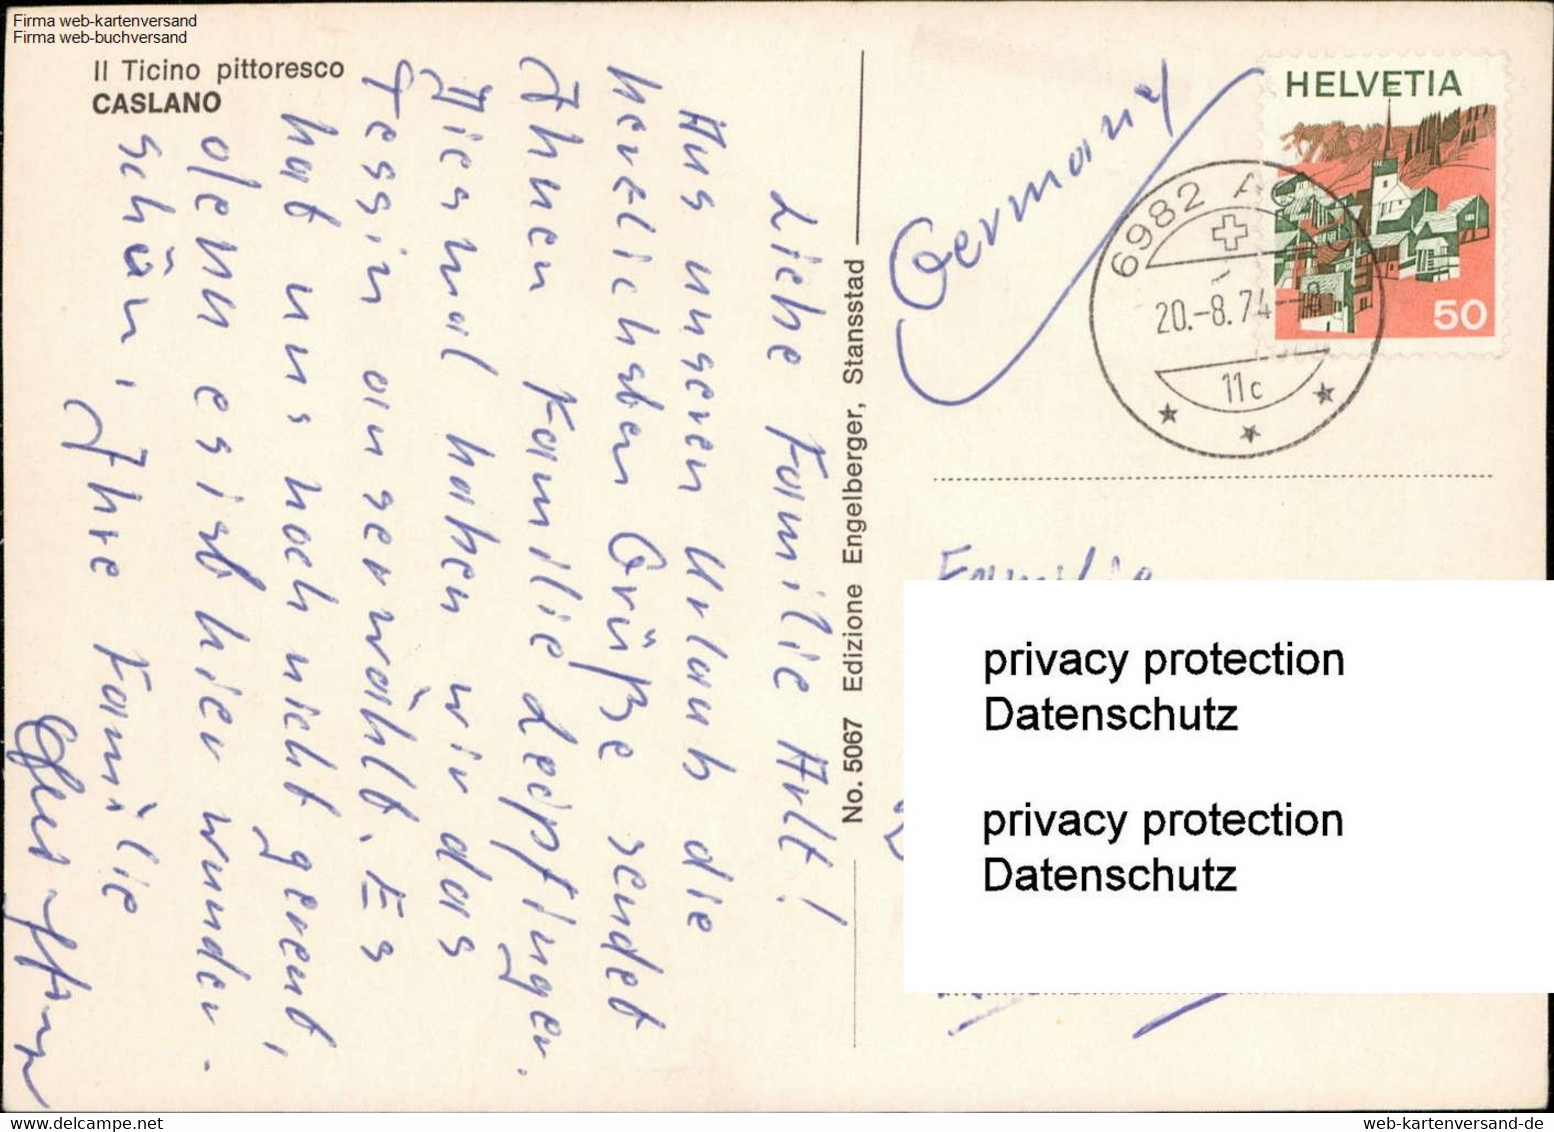 Firma web-kartenversand
Firma web-buchversand
Il Ticino pittoresco
CASLANO
Liebe Familie Arlt!
Aus unseren Urlaub die
herzlichsten Grüße sendet
Ihnen Familie Leipfinger.
Diesmal haben wir das
Tessin auserwählt. Es
hat uns noch nicht gereut,
denn es ist hier wunder-
schön, Ihre Familie
No. 5067 Edizione Engelberger, Stansstad
Germany
HELVETIA
50
6982 AG
20.-8.74
11c
Familie
privacy protection
Datenschutz
privacy protection
Datenschutz
www.web-kartenversand.de
web-kartenversand-de